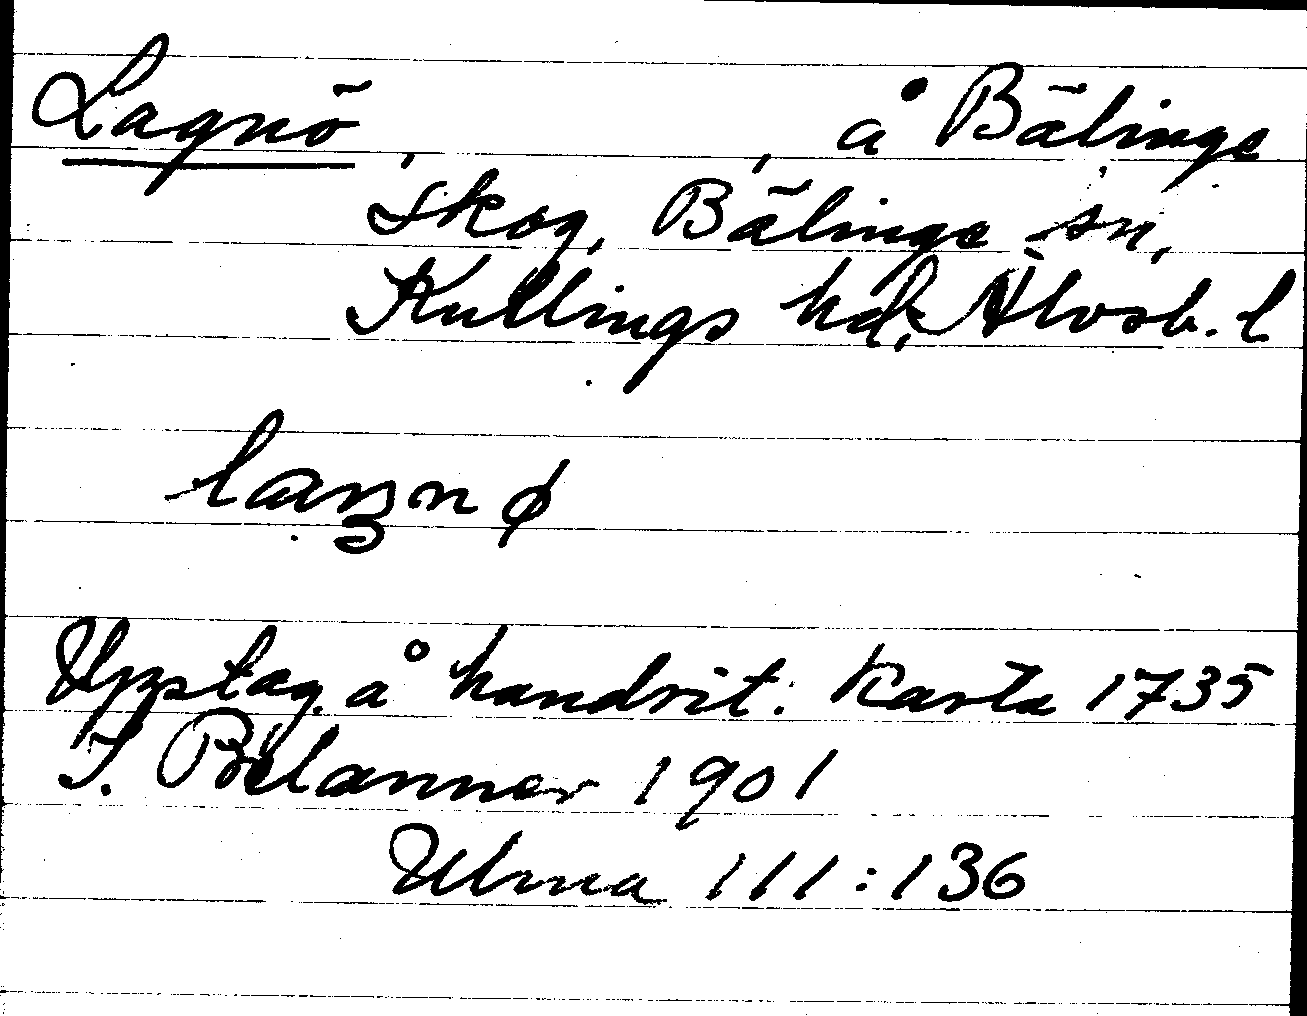 Lagnö, , å Bälinge
skog, Bälinge sn,
Kullings hd, Älvsb. l
Uppstag. å handrit. Karta 1735
J. Belanner 1901
Ulma 111:136